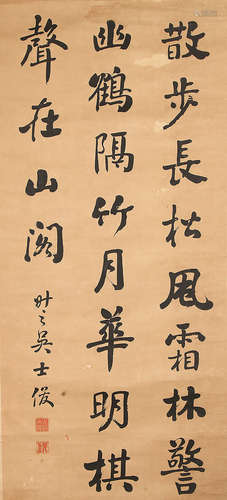 散步長松風霜林警
幽鶴隔竹月華明棋
聲在山閣
吳士俊